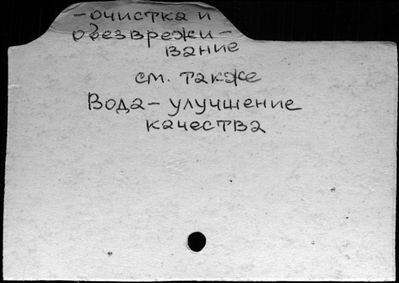 - очистка и
обезврежи-
вание
см. также
Вода - улучшение
качества